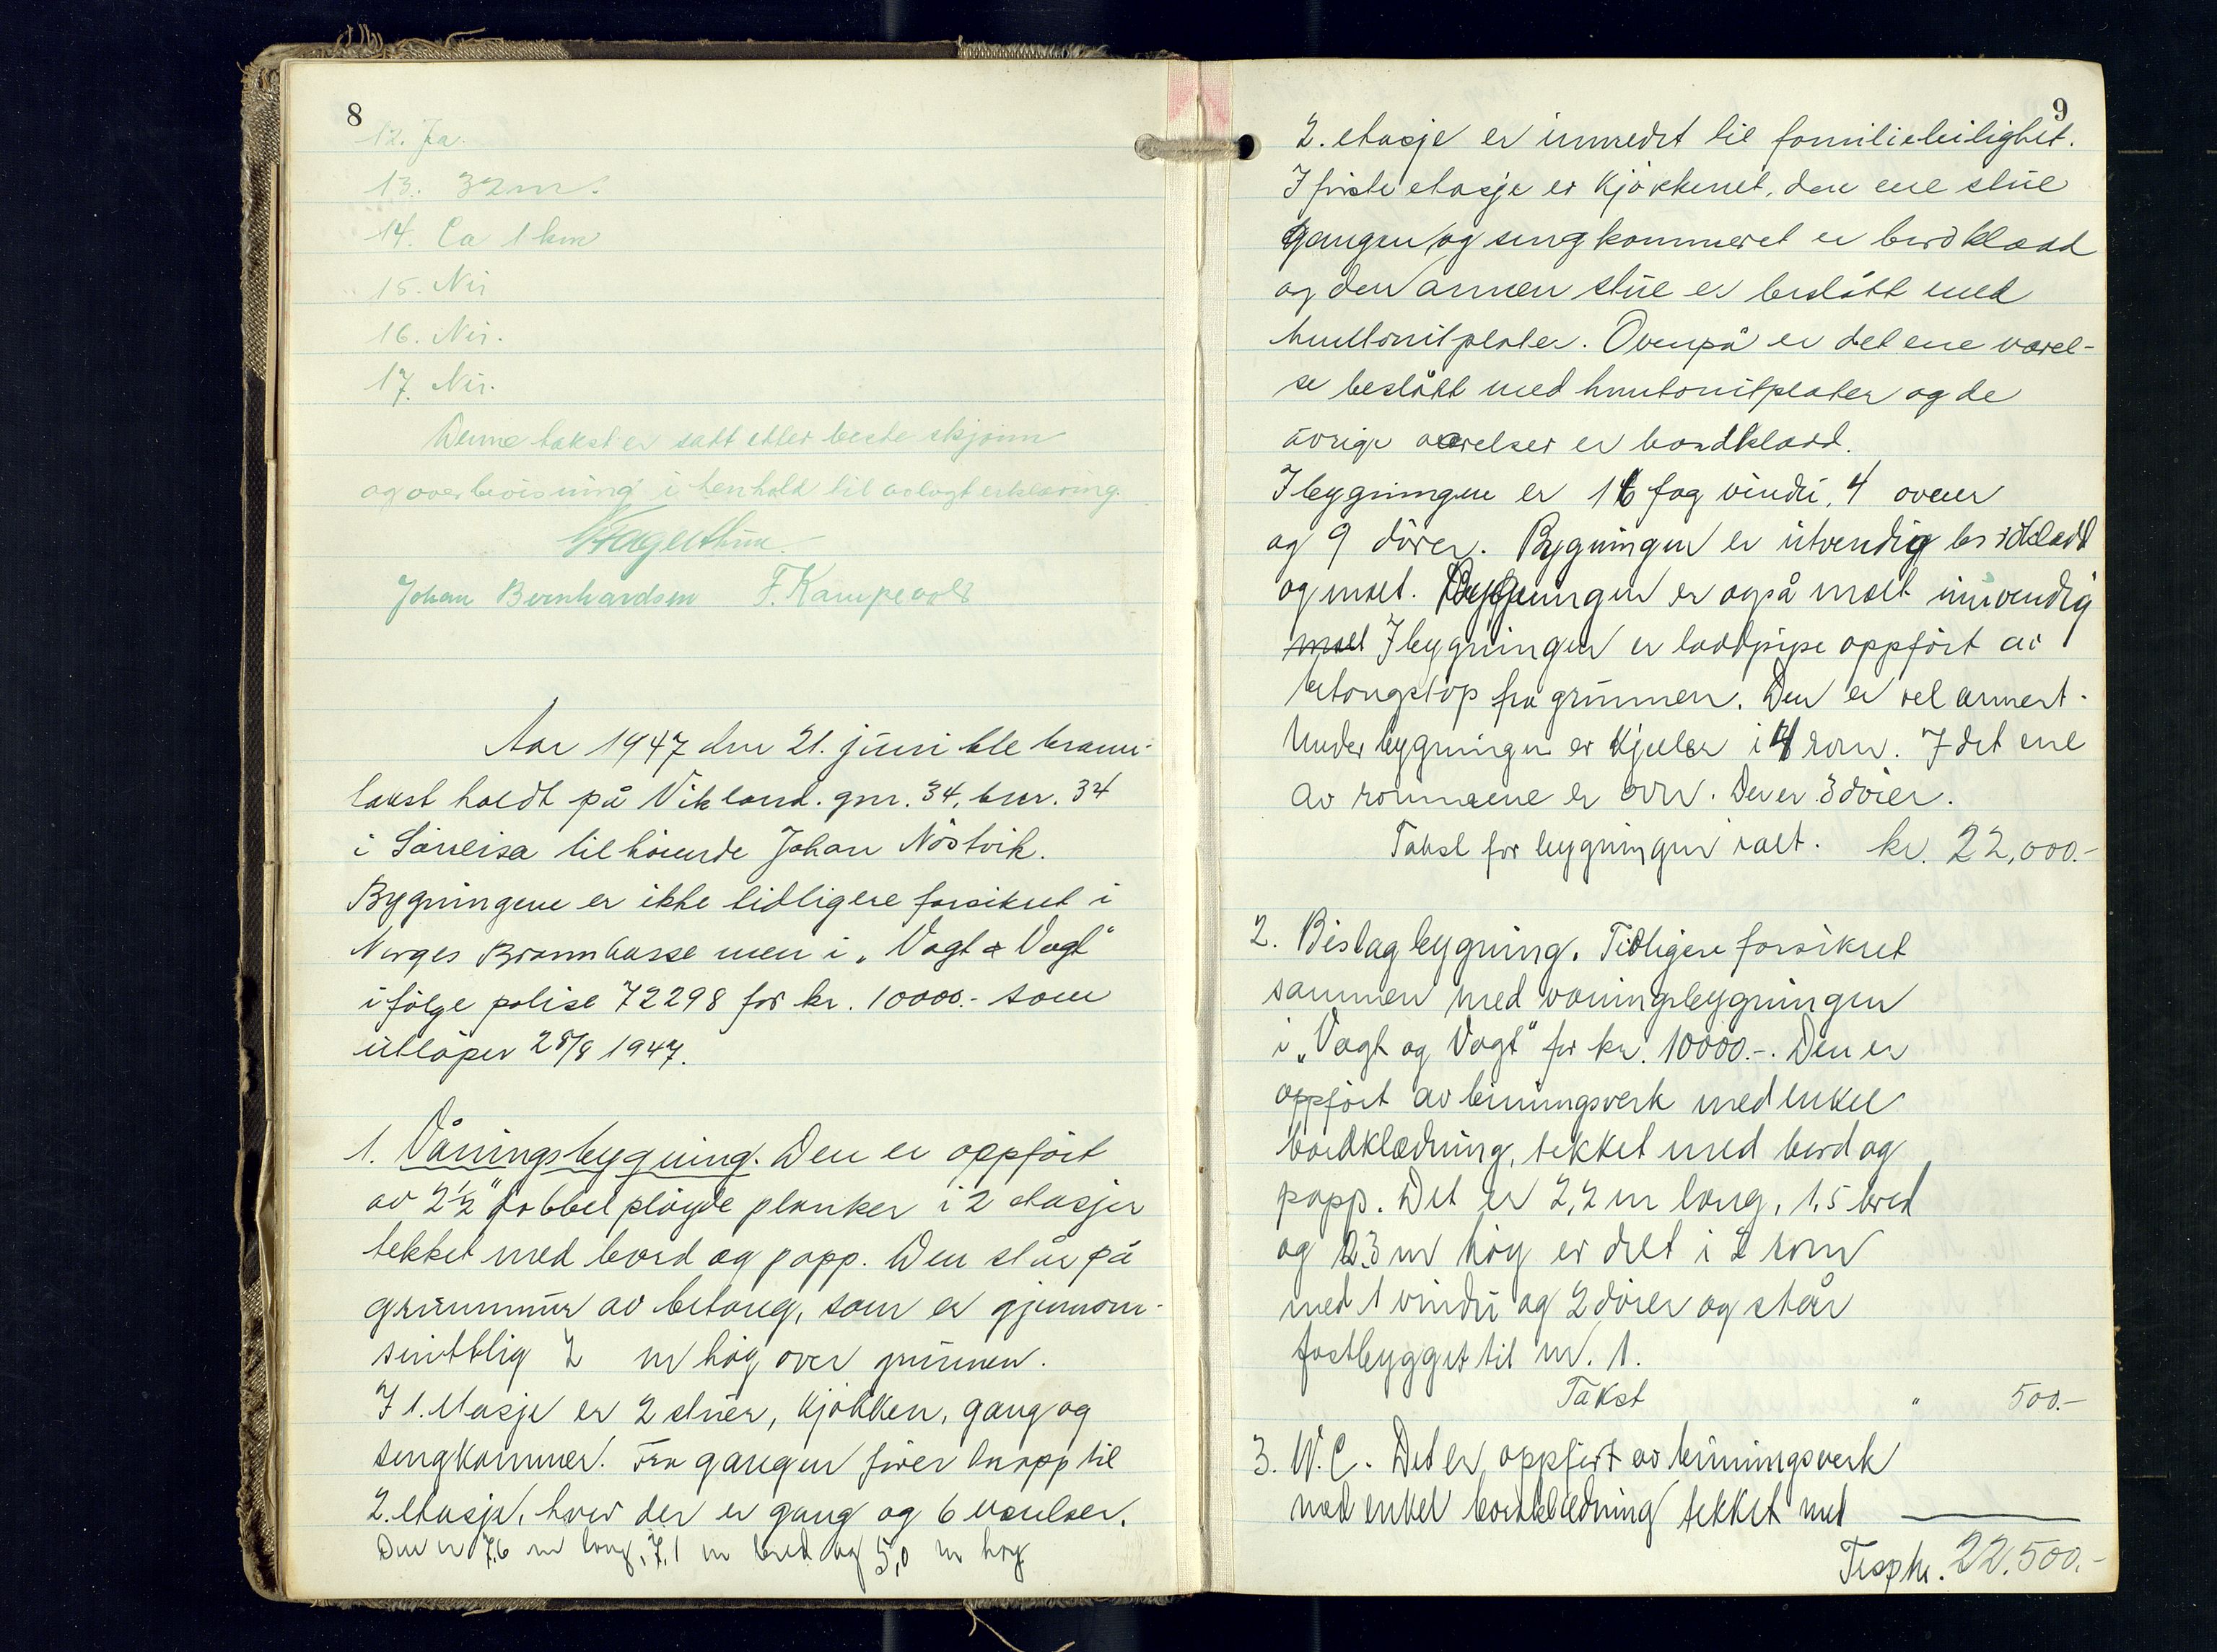 8
12. Ja.
13. 32 m.
14. Ca 1 km
15. Nei
16. Nei.
17. Nei.
Denne takst er satt etter beste skjønn
og overbevisning i henhold til avlagt erklæring.
Johan Bernhardsen F. Kampevoll
Aar 1947 den 21. juni ble brann-
takst holdt på Vikland. gnr. 34, bnr. 34
i Sörreisa tilhörende Johan Nöstvik.
Bygningene er ikke tidligere forsikret i
Norges Brannkasse men i „Vogt & Vogt"
ifölge polise 72298 for kr. 10000.- som
utlöper 28/8 1947.
1. Våningsbygning. Den er oppfört
av 2½" dobbel plöyde planker i 2 etasjer
tekket med bord og papp. Den står på
grunnmur av betong, som er gjennom-
snittlig 2 m høg over grunnen.
I 1. etasje er 2 stuer, kjökken, gang og
sengkammer. Fra gangen förer trapp til
2. etasje, hvor der er gang og 6 værelser.
Den er 7,6 m lang, 7,1 m bred og 5,0 m høg
9
2. etasje er innredet til familieleilighet.
I förste etasje er kjökkenet, den ene stue
gangen og sengkammeret er bordkledd
og den annen stue er beslått med
huntonitplater. Ovenpå er det ene værel-
se beslått med huntonitplater og de
övrige værelser er bordkledd.
I bygningen er 16 fag vindu, 4 ovner
og 9 dörer. Bygningen er utvendig bordkledd
og malt. Bygningen er også malt innvendig
malt I bygningen er loddpipe oppfört av
betongstöp fra grunnen. Den er vel armert.
Under bygningen er kjeller i 4 rom. I det ene
av rommene er ovn. Der er 3 dörer.
Takst for bygningen ialt. kr. 22,000.-
2. Bislagbygning. Tidligere forsikret
sammen med våningsbygningen
i „Vogt og Vogt" for kr. 10000.-. Den er
oppfört av binningsverk med enkel
bordklædning, tekket med bord og
papp. Det er 2,2 m lang, 1,5 bred
og 2.3 m höy er delt i 2 rom
med 1 vindu og 2 dörer og står
fastbygget til nr. 1.
Takst " 500.-
3. W.C. Det er oppfört av binningsverk
med enkel bordklædning tekket med
Trsp kr. 22.500.-